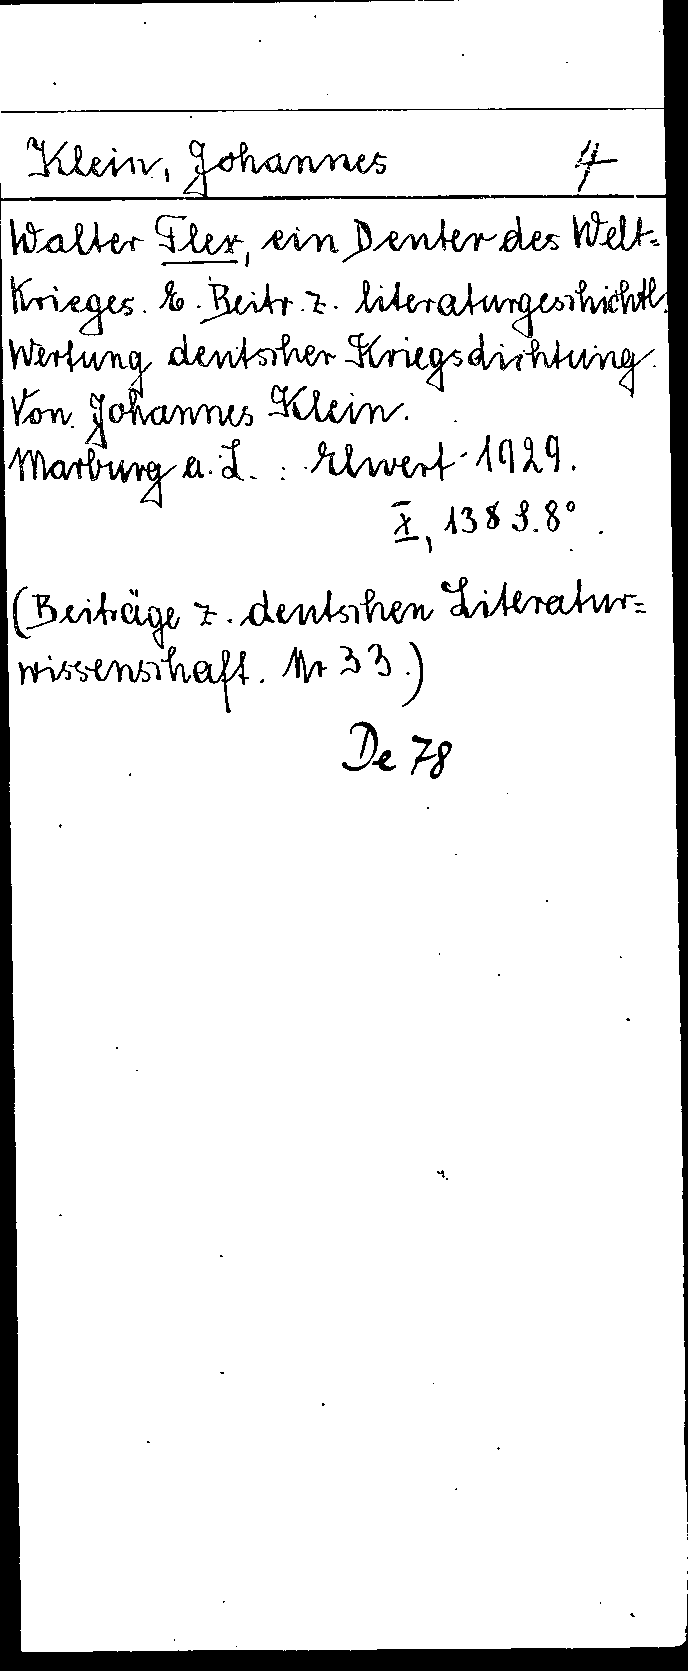 Klein, Johannes 4
Walter Flex, ein Deuter des Welt=
krieges. E. Beitr. z. literaturgeschichtl.
Wertung deutscher Kriegsdichtung.
Von Johannes Klein.
Marburg a. L.: Elwert 1929.
X, 138 S. 8°.
(Beiträge z. deutschen Literatur=
wissenschaft. Nr 33.)
De 78